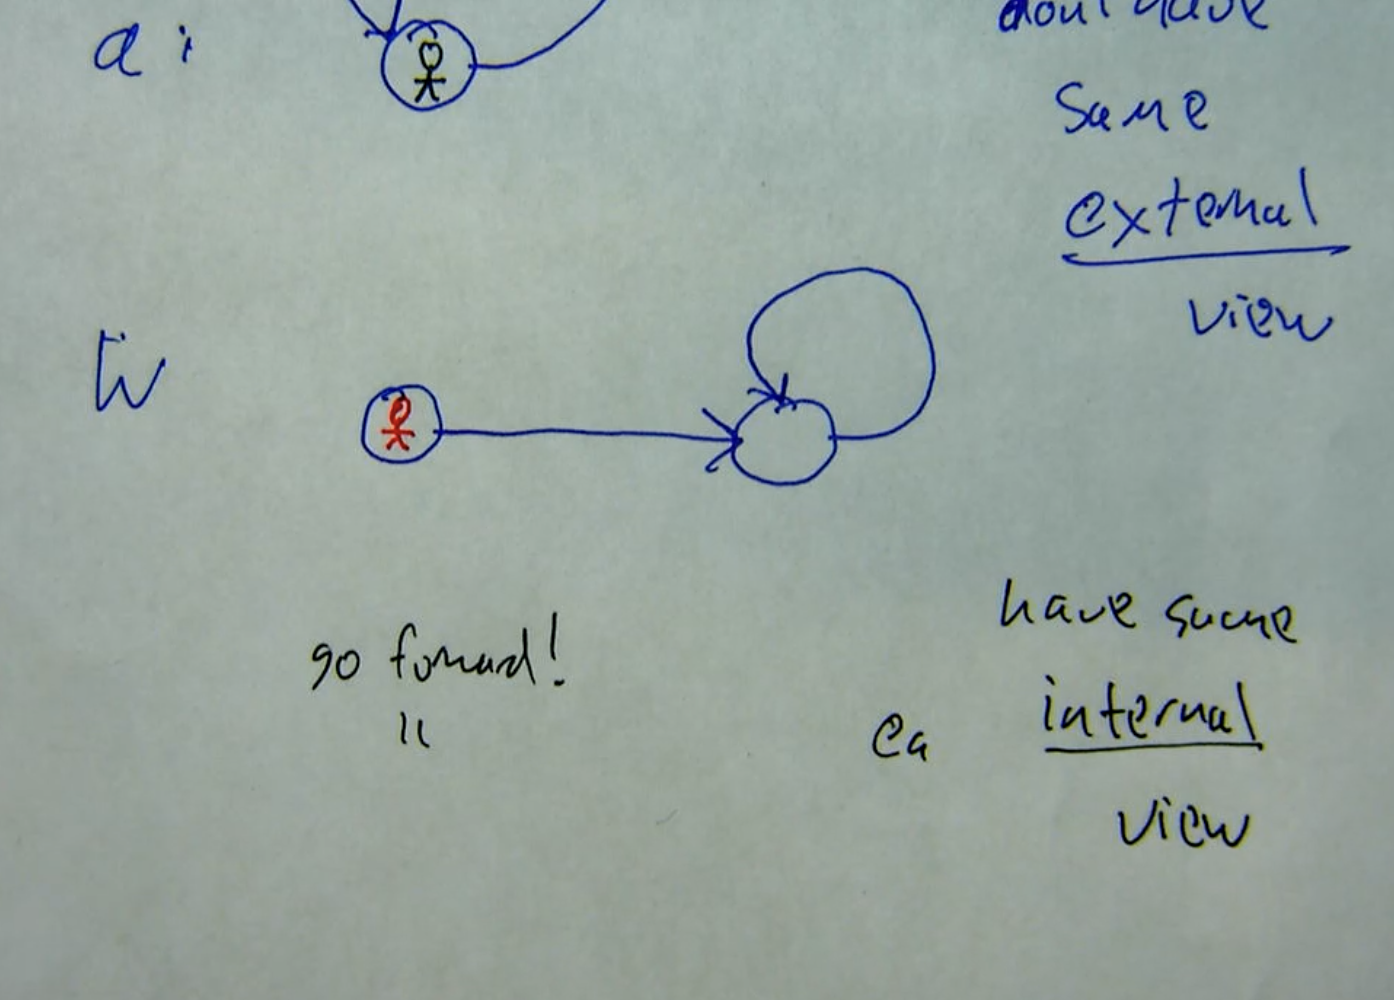 a:
same
external
view
go forward!
have same
internal
view